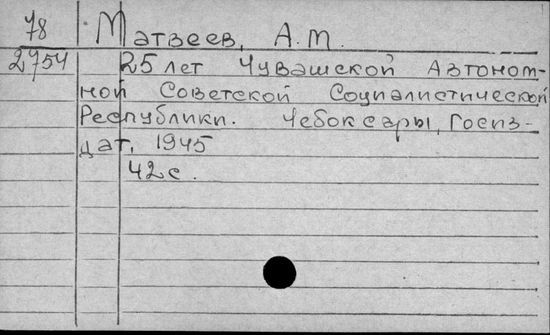 78 Матвеев, А.М.
2754 25 лет Чувашской Автоном-
ной Советской Социалистической
Республики. Чебоксары, Госиз-
дат, 1945
42 с.